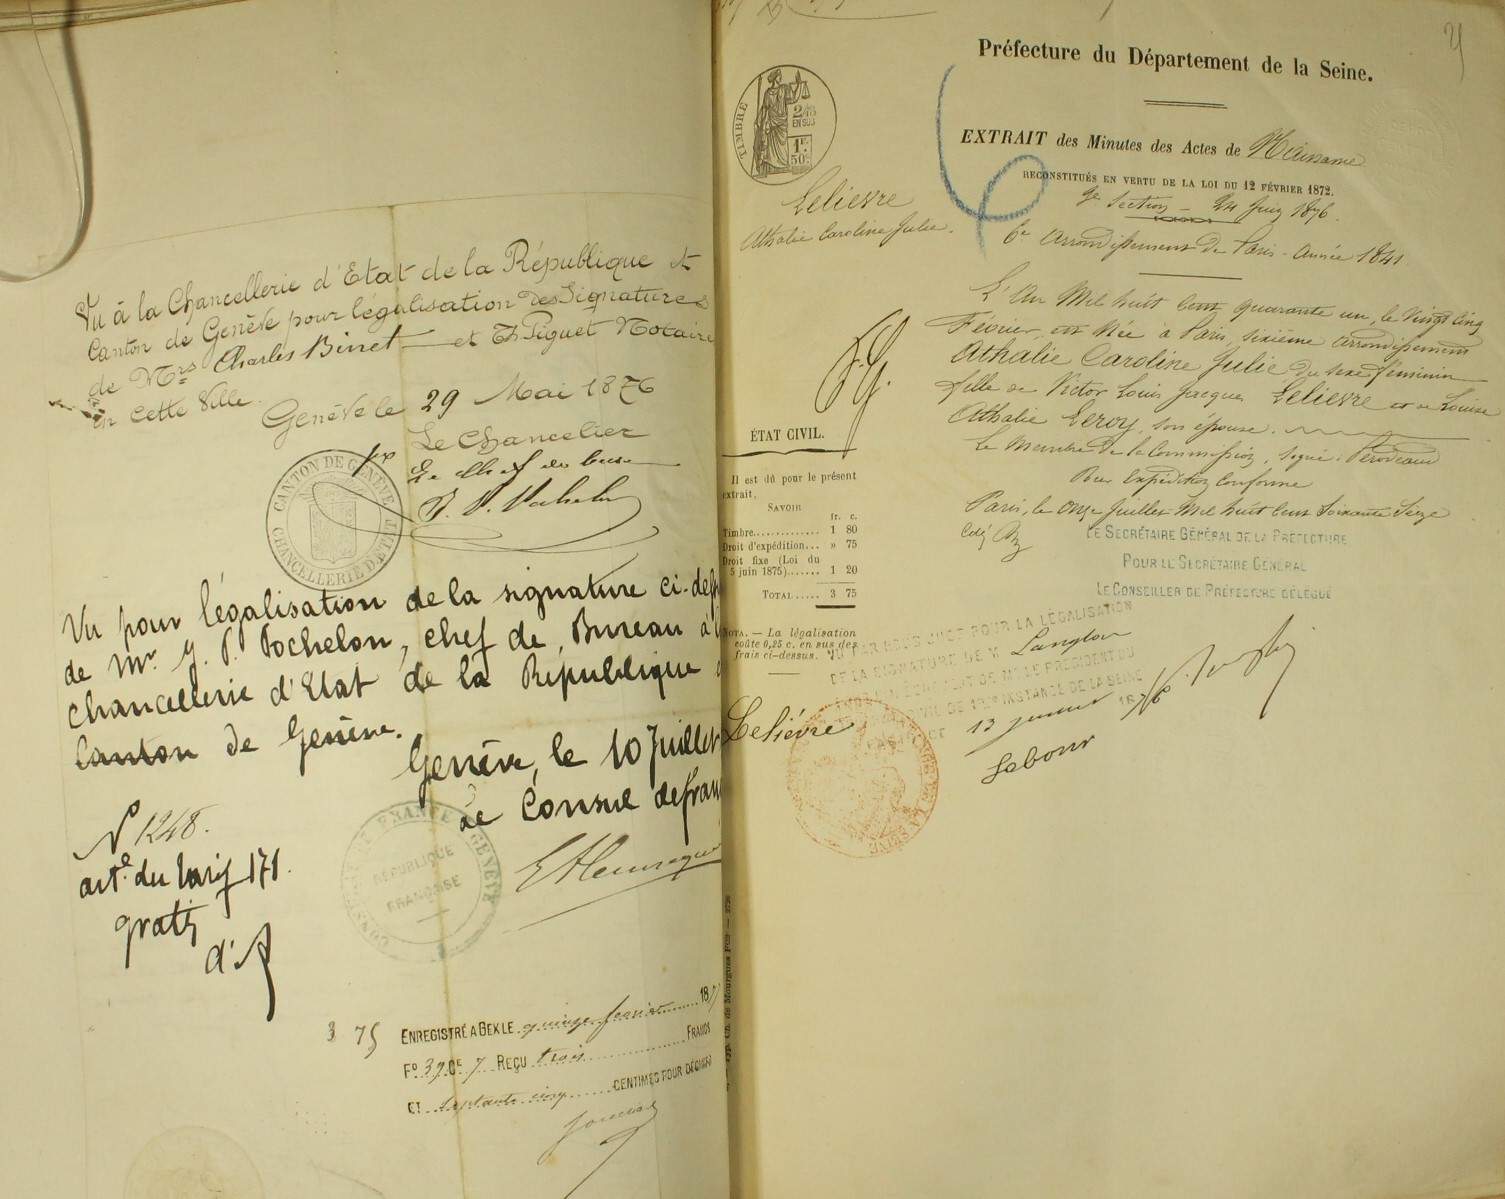 Vu à la Chancellerie d'Etat de la République et
Canton de Genève pour légalisation des Signatures
de Mrs Charles Binet et Th Piguet Notaire
en cette Ville.
Genève le 29 Mai 1876
Le Chancelier
CANTON DE GENÈVE
CHANCELLERIE D'ÉTAT
Vu pour légalisation de la signature ci-dess
de Mr. J. P. Pochelon, chef de Bureau à l
chancellerie d'Etat de la République
Canton de Genève.
Genève, le 10 Juillet
Le Consul de fran
N° 1248.
art. du tarif 171.
gratis
d'A
RÉPUBLIQUE
FRANÇAISE
GENÈVE
3 75
ENREGISTRÉ A GEX LE quinze février 18
Fo 39 Ce 7 REÇU trois FRANCS
ET septante cinq CENTIMES POUR DÉCIMES
Préfecture du Département de la Seine.
TIMBRE
2/10
EN SUS
1F.
50c.
EXTRAIT des Minutes des Actes de Naissance
RECONSTITUÉS EN VERTU DE LA LOI DU 12 FÉVRIER 1872.
Section - 24 Juin 1876.
6e arrondissement de Paris - année 1841
Lelievre
Athalie Caroline Julie.
L'An Mil huit cent quarante un, le Vingt cinq
Février, est née à Paris, sixième arrondissement
Athalie Caroline Julie du sexe féminin
fille de Victor Louis Jacques Lelievre et de Louise
Athalie Leroy, son épouse.
Le Membre de la Commission, signé: Perodeaud
Pour Expédition Conforme
Paris, le onze Juillet Mil huit cent soixante seize
LE SECRÉTAIRE GÉNÉRAL DE LA PRÉFECTURE
POUR LE SECRÉTAIRE GÉNÉRAL
LE CONSEILLER DE PRÉFECTURE DÉLÉGUÉ
ÉTAT CIVIL.
Il est dû pour le présent
extrait,
SAVOIR
fr. c.
Timbre............. 1 80
Droit d'expédition... » 75
Droit fixe (Loi du
5 juin 1875)....... 1 20
TOTAL..... 3 75
NOTA. — La légalisation
coûte 0,25 c. en sus des
frais ci-dessus.
VU PAR NOUS JUGE POUR LA LÉGALISATION
DE LA SIGNATURE DE M Langlon
PAR EMPÊCHEMENT DE MR LE PRÉSIDENT DU
TRIBUNAL CIVIL DE 1RE INSTANCE DE LA SEINE
13 juillet 1876
Lebour
Lelièvre